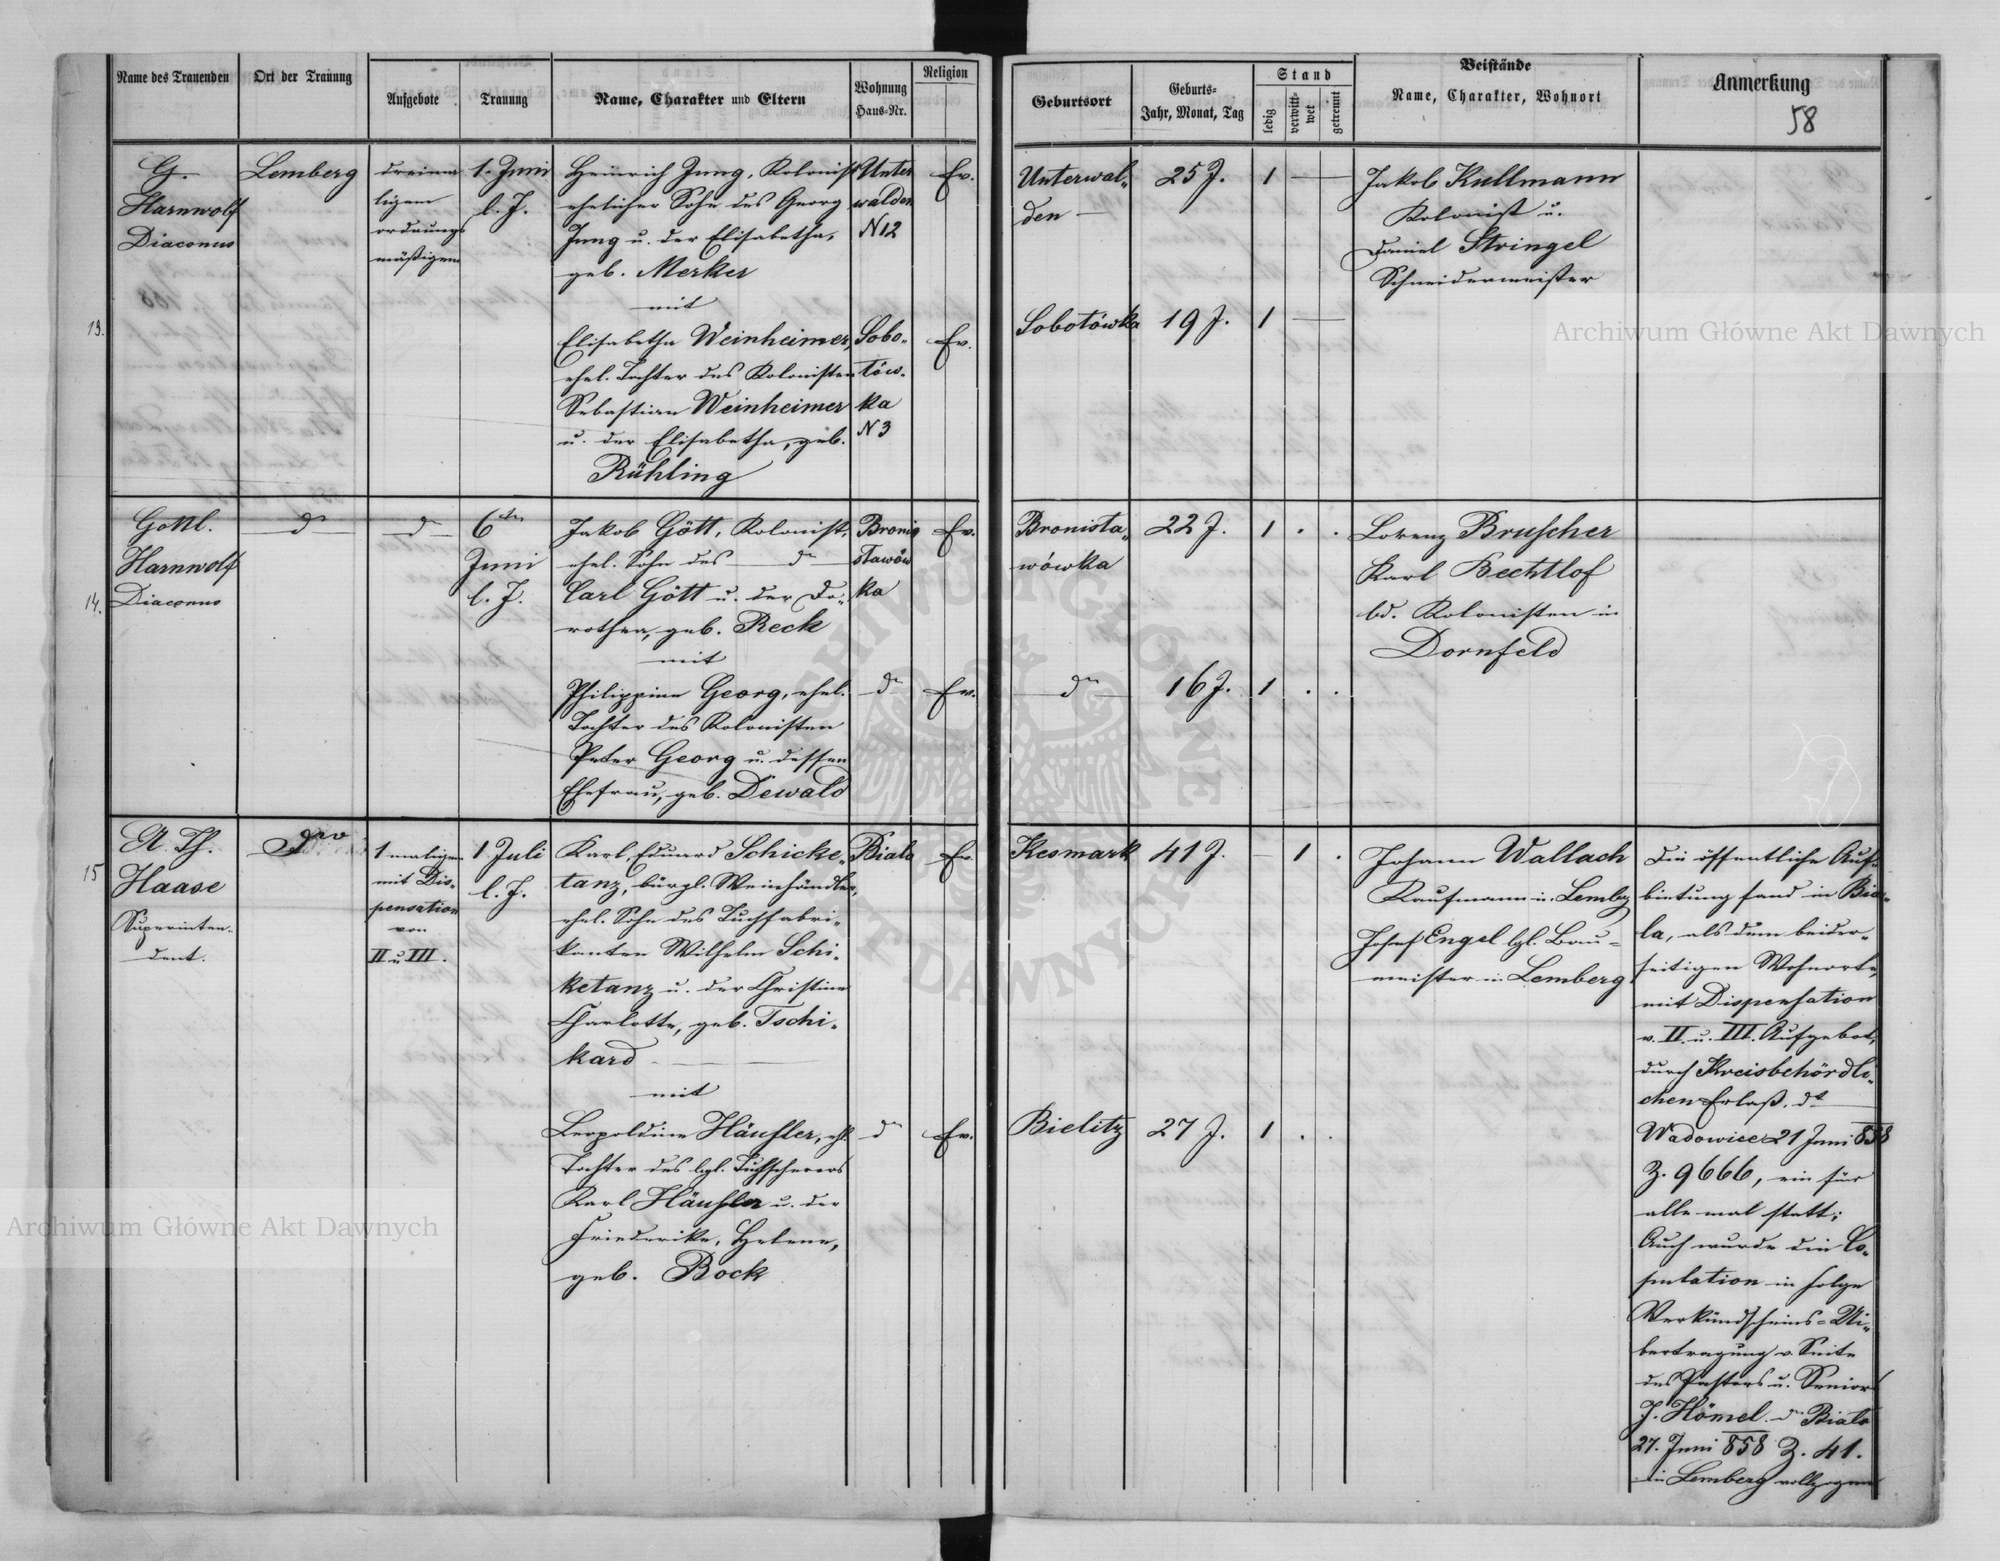 Name des Trauenden
Ort der Trauung
Aufgebote
Trauung
Name, Charakter und Eltern
Wohnung
Haus-Nr.
Religion
Geburtsort
Geburts-
Jahr, Monat, Tag
Stand
ledig
verwitt-
wet
getrennt
Beistände
Name, Charakter, Wohnort
Anmerkung
58
13.
G.
Harnwolf
Diaconus
Lemberg
dreima
ligem
ordnungs
mäßigem
1. Juni
l. J.
Heinrich Jung, Kolonist
ehelicher Sohn des Georg
Jung u. der Elisabetha,
geb. Merker
mit
Elisabetha Weinheimer,
ehel. Tochter des Kolonisten
Sebastian Weinheimer
u. der Elisabetha, geb.
Rühling
Unter
walden
N 12
Sobo-
tów-
ka
N 3
Ev.
Ev.
Unterwal-
den
Sobotówka
25 J.
19 J.
1
1
Jakob Kullmann
Kolonist u.
Daniel Stringel
Schneidermeister
Archiwum Główne Akt Dawnych
14.
Gottl.
Harnwolf
Diaconus
dto
dto
6ten
Juni
l. J.
Jakob Gött, Kolonist,
ehel. Sohn des dto
Carl Gött u. der Do-
rothea, geb. Reck
mit
Philippine Georg, ehel.
Tochter des Kolonisten
Peter Georg u. dessen
Ehefrau, geb. Dewald
Bronis
stawów
ka
dto
Ev.
Ev.
Bronista-
wówka
dto
22 J.
16 J.
1 . .
1 . .
Lorenz Bruscher
Karl Bechtlof
bd. Kolonisten in
Dornfeld
15
A. Th.
Haase
Superinten-
dent.
dto
1 maligem
mit Dis-
pensation
von
II u III.
1 Juli
l. J.
Karl Eduard Schicke-
tanz, bürgl. Weinhändler,
ehel. Sohn des Tuchfabri-
kanten Wilhelm Schi-
ketanz u. der Christine
Charlotte, geb. Tschi-
kard
mit
Leopoldine Häusler, ehl.
Tochter des bgl. Tuchscherers
Karl Häusler u. der
Friederike, Helene,
geb. Bock
Biala
dto
Ev.
Ev.
Kesmark
Bielitz
41 J.
27 J.
1 .
1 . .
Johann Wallach
Kaufmann in Lemberg
Josef Engel bgl. Bau-
meister in Lemberg
Die öffentliche Auf-
bietung fand in Bia-
la, als dem beider-
seitigen Wohnorte,
mit Dispensation
v. II. u. III. Aufgebot,
durch Kreisbehördli-
chen Erlaß. dto
Wadowice 21 Juni 858
Z. 9666, ein für
alle mal statt;
Auch wurde die Co-
pulation in Folge
Verkündscheins-Ui-
bertragung v. Seite
des Pastors u. Seniors
J. Hömel dto Biala
27. Juni 858 Z. 41.
in Lemberg vollzogen
Archiwum Główne Akt Dawnych
ARCHIWUM GŁÓWNE AKT DAWNYCH